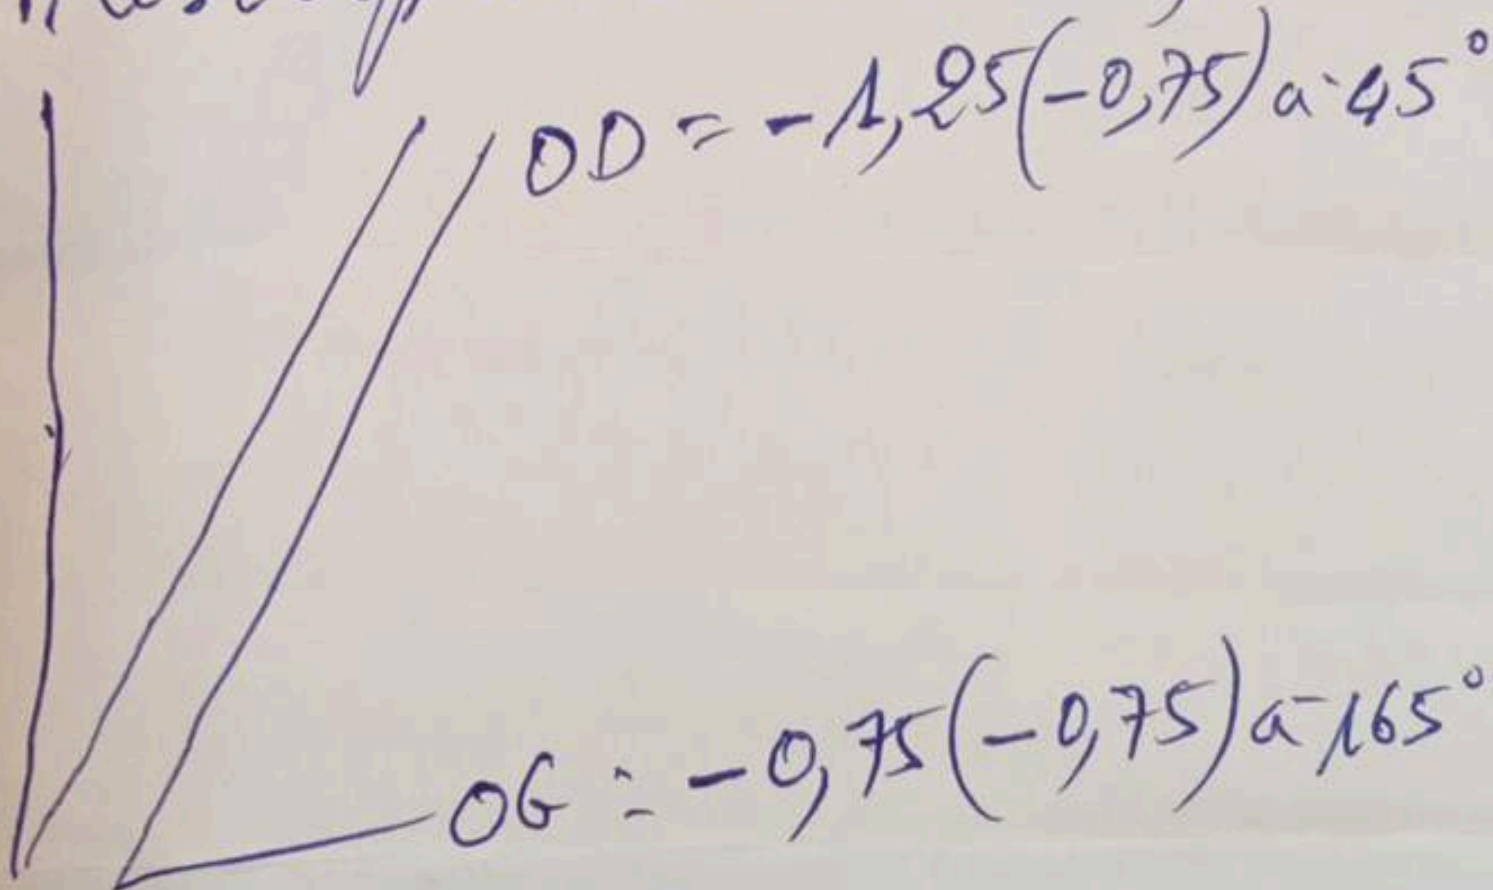 OD = -1,25(-0,75) à 45°
OG = -0,75(-0,75) à 165°